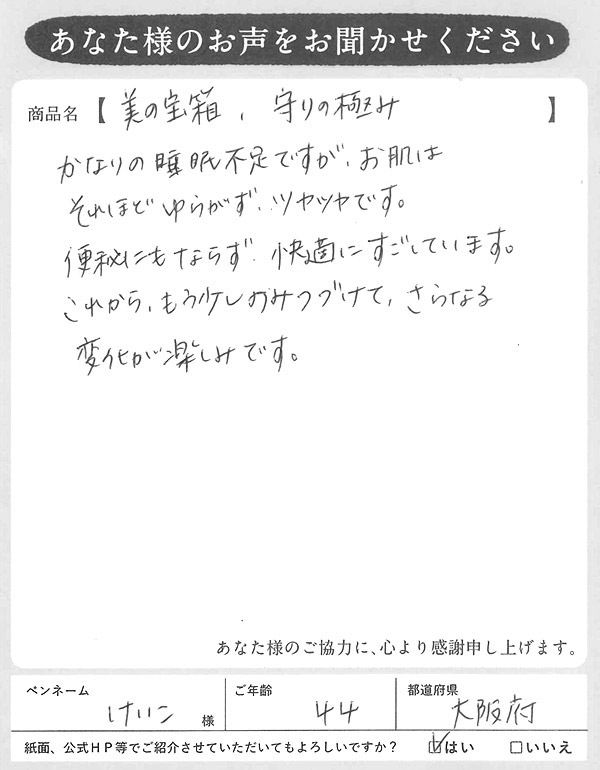 あなた様のお声をお聞かせください
商品名【 美の宝箱、守りの極み 】
かなりの睡眠不足ですが、お肌は
それほどゆらがず、ツヤツヤです。
便秘にもならず、快適にすごしています。
これから、もう少しのみつづけて、さらなる
変化が楽しみです。
あなた様のご協力に、心より感謝申し上げます。
ペンネーム けいこ 様 ご年齢 44 都道府県 大阪府
紙面、公式HP等でご紹介させていただいてもよろしいですか？ ☑はい □いいえ